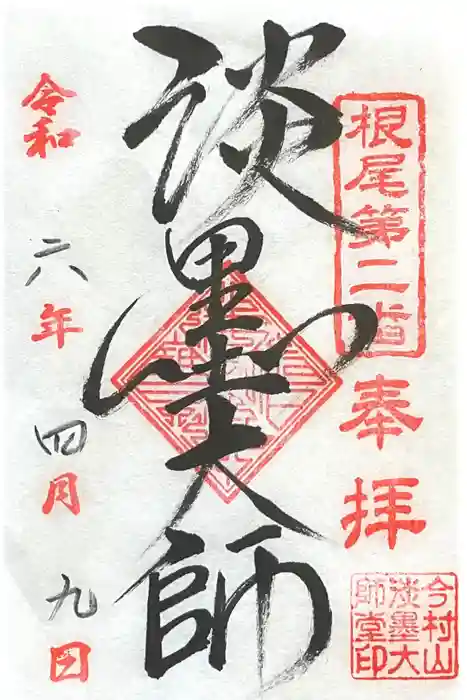 根尾第二
奉拝
今村山
淡墨大
師堂印
淡墨大師
令和六年四月九日